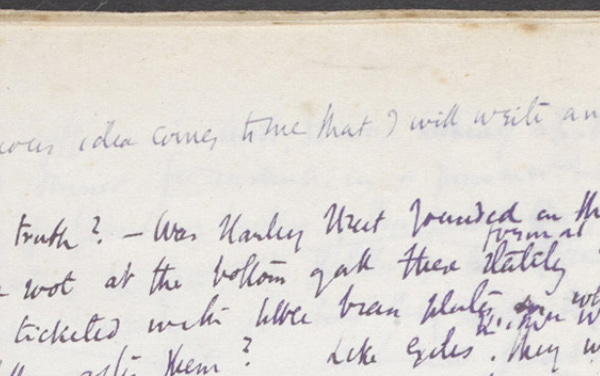 idea comes to me that I will write an
truth? - Was Harley Street founded on th
formal
root at the bottom of all these stately
ticketed with little brass plates
after them? Like Eeles. They w